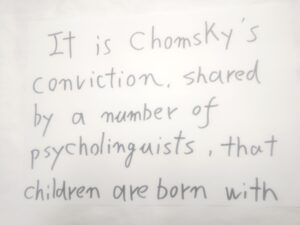 It is Chomsky's
conviction, shared
by a number of
psycholinguists, that
children are born with